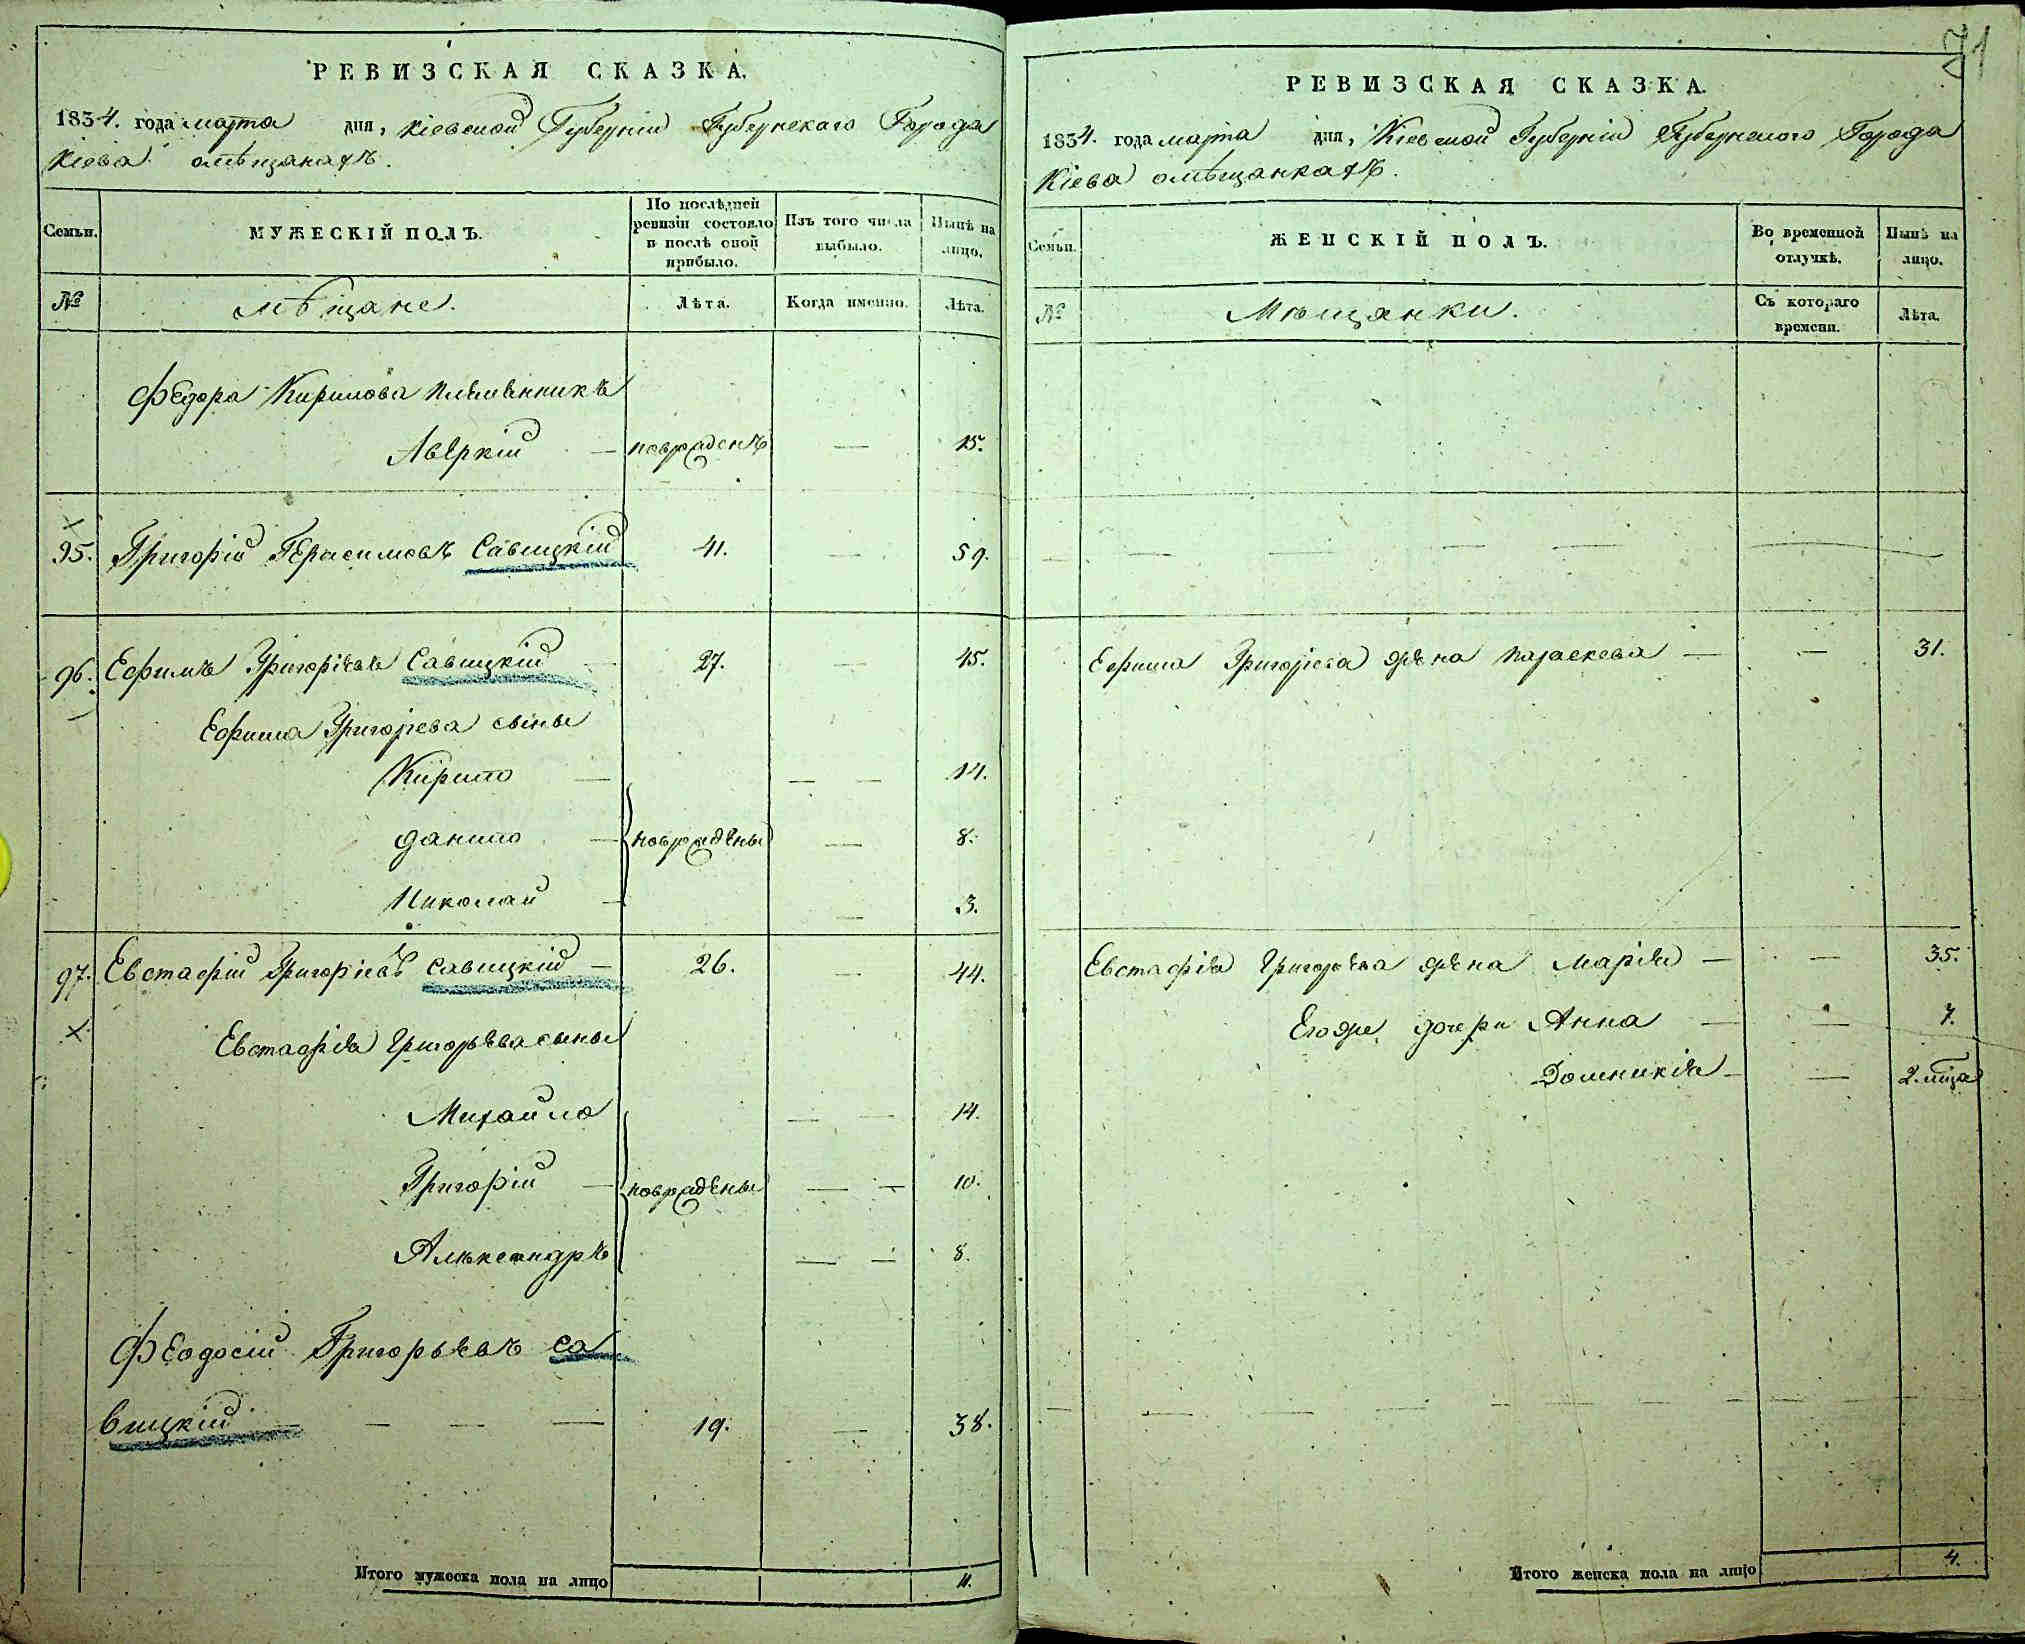 РЕВИЗСКАЯ СКАЗКА.
1834. года марта дня, Кіевской Губерніи Губернскаго Города
Кіева омѣщанахъ.
Семьи.
МУЖЕСКІЙ ПОЛЪ.
По послѣдней ревизіи состояло и послѣ оной прибыло.
Изъ того числа выбыло.
Нынѣ на лицо.
№
мѣщане.
Лѣта.
Когда именно.
Лѣта.
Федора Кирилова племенникъ
Аверкій — новрожденъ — 15.
95. Григорій Герасимовъ Савицкій 41. — 59.
96. Ефимъ Григоріевъ Савицкій — 27. — 45.
Ефима Григорьева сыны
Кирило — — — 14.
Данило — новрождены — 8.
Николай — — 3.
97. Евстафій Григоріевъ Савицкій — 26. — 44.
Евстафія Григорьева сыны
Михайло — — 14.
Григорій — новрождены — — 10.
Александръ — — 8.
Феодосій Григорьевъ Са
вицкій — — — — 19. — 38.
Итого мужеска пола на лицо 11.
71
РЕВИЗСКАЯ СКАЗКА.
1834. года марта дня, Кіевской Губерніи Губернского Города
Кіева омѣщанкахъ.
Семьи.
ЖЕНСКІЙ ПОЛЪ.
Во временной отлучкѣ.
Нынѣ на лицо.
№
Мѣщанки.
Съ котораго времени.
Лѣта.
Ефима Григорьева жена Параскева — — 31.
Евстафія Григорьева жена Марія — — 35.
Егоже дочери Анна — — 7.
Домникія — — 2. мѣца
Итого женска пола на лицо 4.